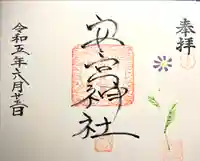 奉拝
安宮神社
令和五年六月廿五日